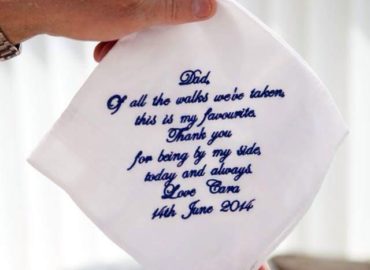 Dad,
Of all the walks we've taken,
this is my favourite.
Thank you
for being by my side,
today and always.
Love Cara
14th June 2014